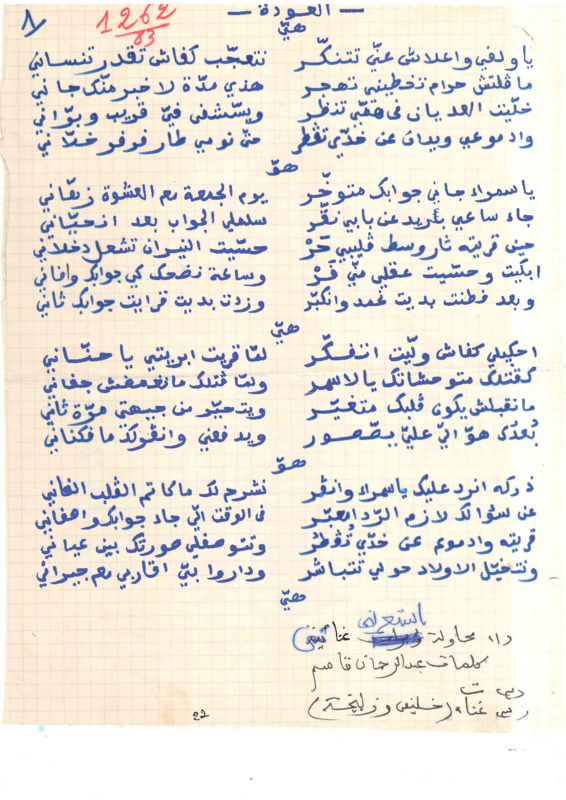 — العودة —
8
1262
83
هيّ
ياولفي واعلاش عنّي تتنكّر نتعجّب كفاش تقدر تنساني
ما قلتش حرام تخطيني تهجر هذي مدّة لا خبر منّك جاني
خلّيت العديان في همّي تنظر ويستشفى فيّ قريب وبرّاني
وادموعي ويدان عن خدّي تقطر حتّى نومي طار فرفر خلاّني
هوّ
ياسمراء جاني جوابك متوخّر يوم الجمعة مع العشوة زرقاني
جاء ساعي بريد عن بابي نقّر سلملي الجواب بعد ان حيّاني
حين قريته ثار وسط قليبي حَرْ حسّيت النيران تشعل دخلاني
ابكيت وحسّيت عقلي منّي فَرْ وساعة نضحك كي جوابك وافاني
وبعد فطنت بديت نحمد وانكبّر وزدت بديت قرايت جوابك ثاني
هيّ
احكيلي كفاش ولّيت اتفكّر لمّا قريت ابريتي يا حنّاني
كي قتلك متوحشاتك يالاسمر ولمّا قتلك ما تغمضش جفاني
ما نقبلش يكون قلبك متغيّر ويتحيّر من جيهتي مرّة ثاني
بُعدك هوّ الّي عليّ يصّور ويدفعني وانقولك ما فكناني
هوّ
ذركه انرد عليك ياسمراء وانقر نشرح لك ما كاتم القلب الفاني
عن سئوالك لازم الرّد ايعبّر في الوقت الّي جاء جوابك واهفاني
قريته وادموع عن خدّي تُقطر وتتوصفلي صورتك بين عياني
ونتخيّل الاولاد حولي تتباشر وداروا بيّ اقاربي مع جيراني
هيّ
باستعراض
دا: محاولة غنائيّة
كلمات عبدالرحمان قاسم
غناء (خليفي و زليخة)
22